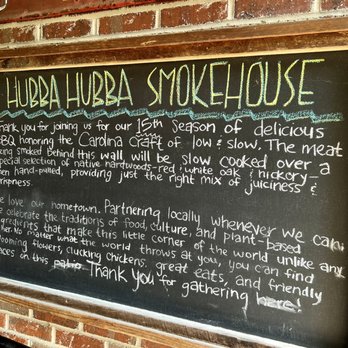 HUBBA HUBBA SMOKEHOUSE
hank you for joining us for our 15th season of delicious
BQ honoring the Carolina craft of low & slow. The meat
ing smoked behind this wall will be slow cooked over a
pecial selection of native hardwoods-red & white oak & hickory-
en hand-pulled, providing just the right mix of juiciness &
rispness.
e love our hometown. Partnering locally whenever we can
e celebrate the traditions of food, culture, and plant-based
gredients that make this little corner of the world unlike any
her. No matter what the world throws at you, you can find
ooming flowers, clucking chickens, great eats, and friendly
aces on this patio. Thank you for gathering here!